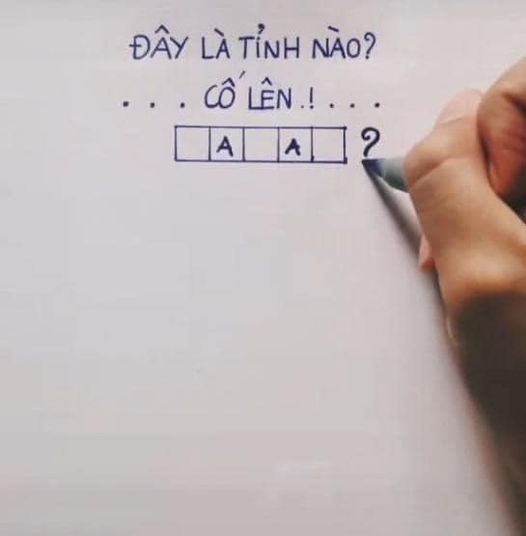 ĐÂY LÀ TỈNH NÀO?
. . . CỐ LÊN.! . . .
A A ?